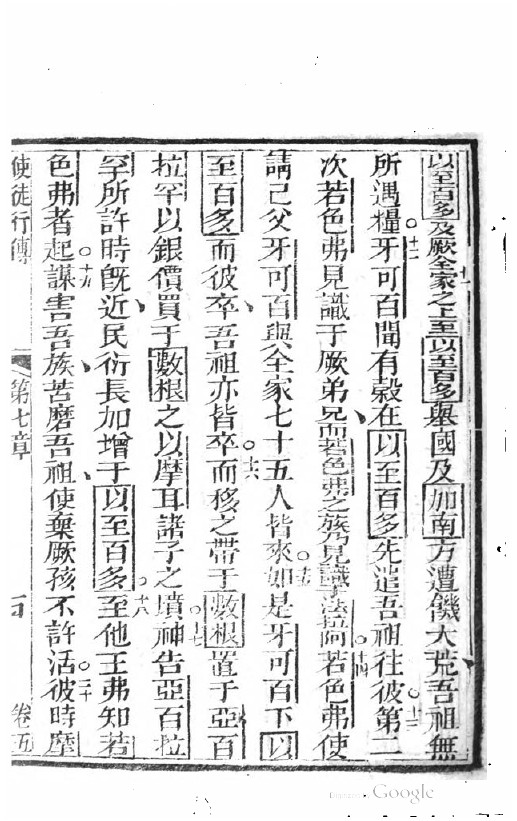 以至百多及厥全家之上至以至百多舉國及加南方遭饑大荒吾祖無
十一
所遇糧牙可百聞有穀在以至百多先遣吾祖往彼第二
十二
十三
次若色弗見識于厥弟兄而若色弗之族乃見識于法拉阿若色弗使
十四
請己父牙可百與全家七十五人皆來如是牙可百下以
十五
至百多而彼卒吾祖亦皆卒而移之帶于數根置于亞百
十六
拉罕以銀價買于數根之以摩耳諸子之墳神告亞百拉
十七
罕所許時旣近民衍長加增于以至百多至他王弗知若
十八
色弗者起謀害吾族苦磨吾祖使棄厥孩不許活彼時摩
十九
二十
使徒行傳
第七章
卷五
Digitized by Google